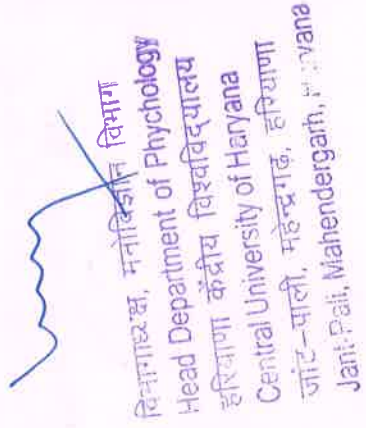 विभागाध्यक्ष, मनोविज्ञान विभाग
Head Department of Phychology
हरियाणा केंद्रीय विश्वविद्यालय
Central University of Haryana
जांट-पाली, महेन्द्रगढ़, हरियाणा
Jant-Pali, Mahendergarh,